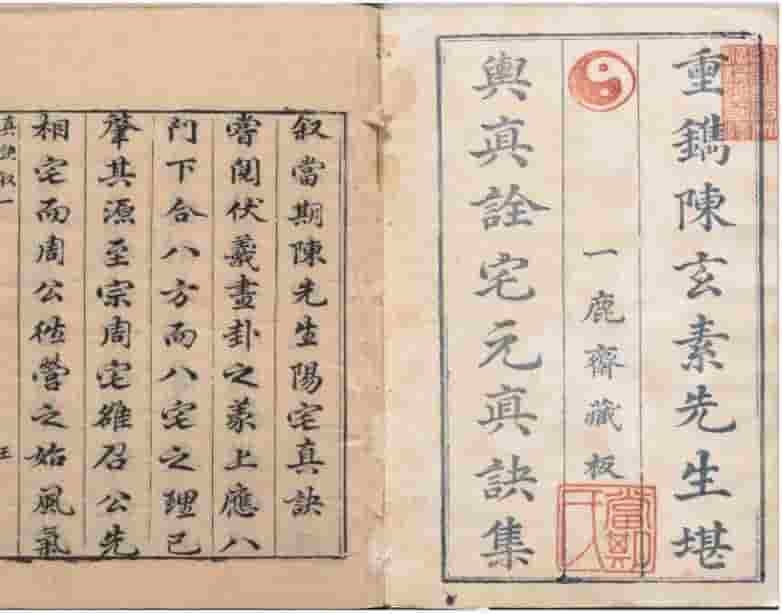 重鐫陳玄素先生堪
一鹿齋藏板
輿真詮宅元真訣集
叙當期陳先生陽宅真訣
嘗閱伏羲畫卦之象上應八
門下合八方而八宅之理已
肇其源至宗周宅雒召公先
相宅而周公營之始風氣
真訣叙一
王